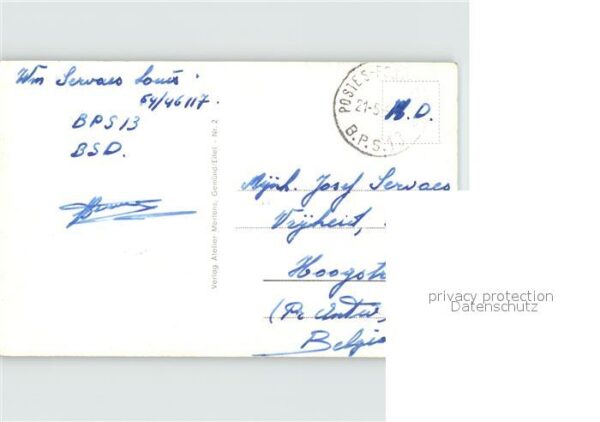 Wm Servaes Louis.
54/46117.
BPS13
BSD.
Verlag Atelier Mertens, Gemünd Eifel - Nr. 2
POSTES-
21-5
B.P.S.13
M.D.
Mijnh. Josef Servaes
Vrijheid,
Hoogstr
(Pr Antw,
Belgie
privacy protection
Datenschutz